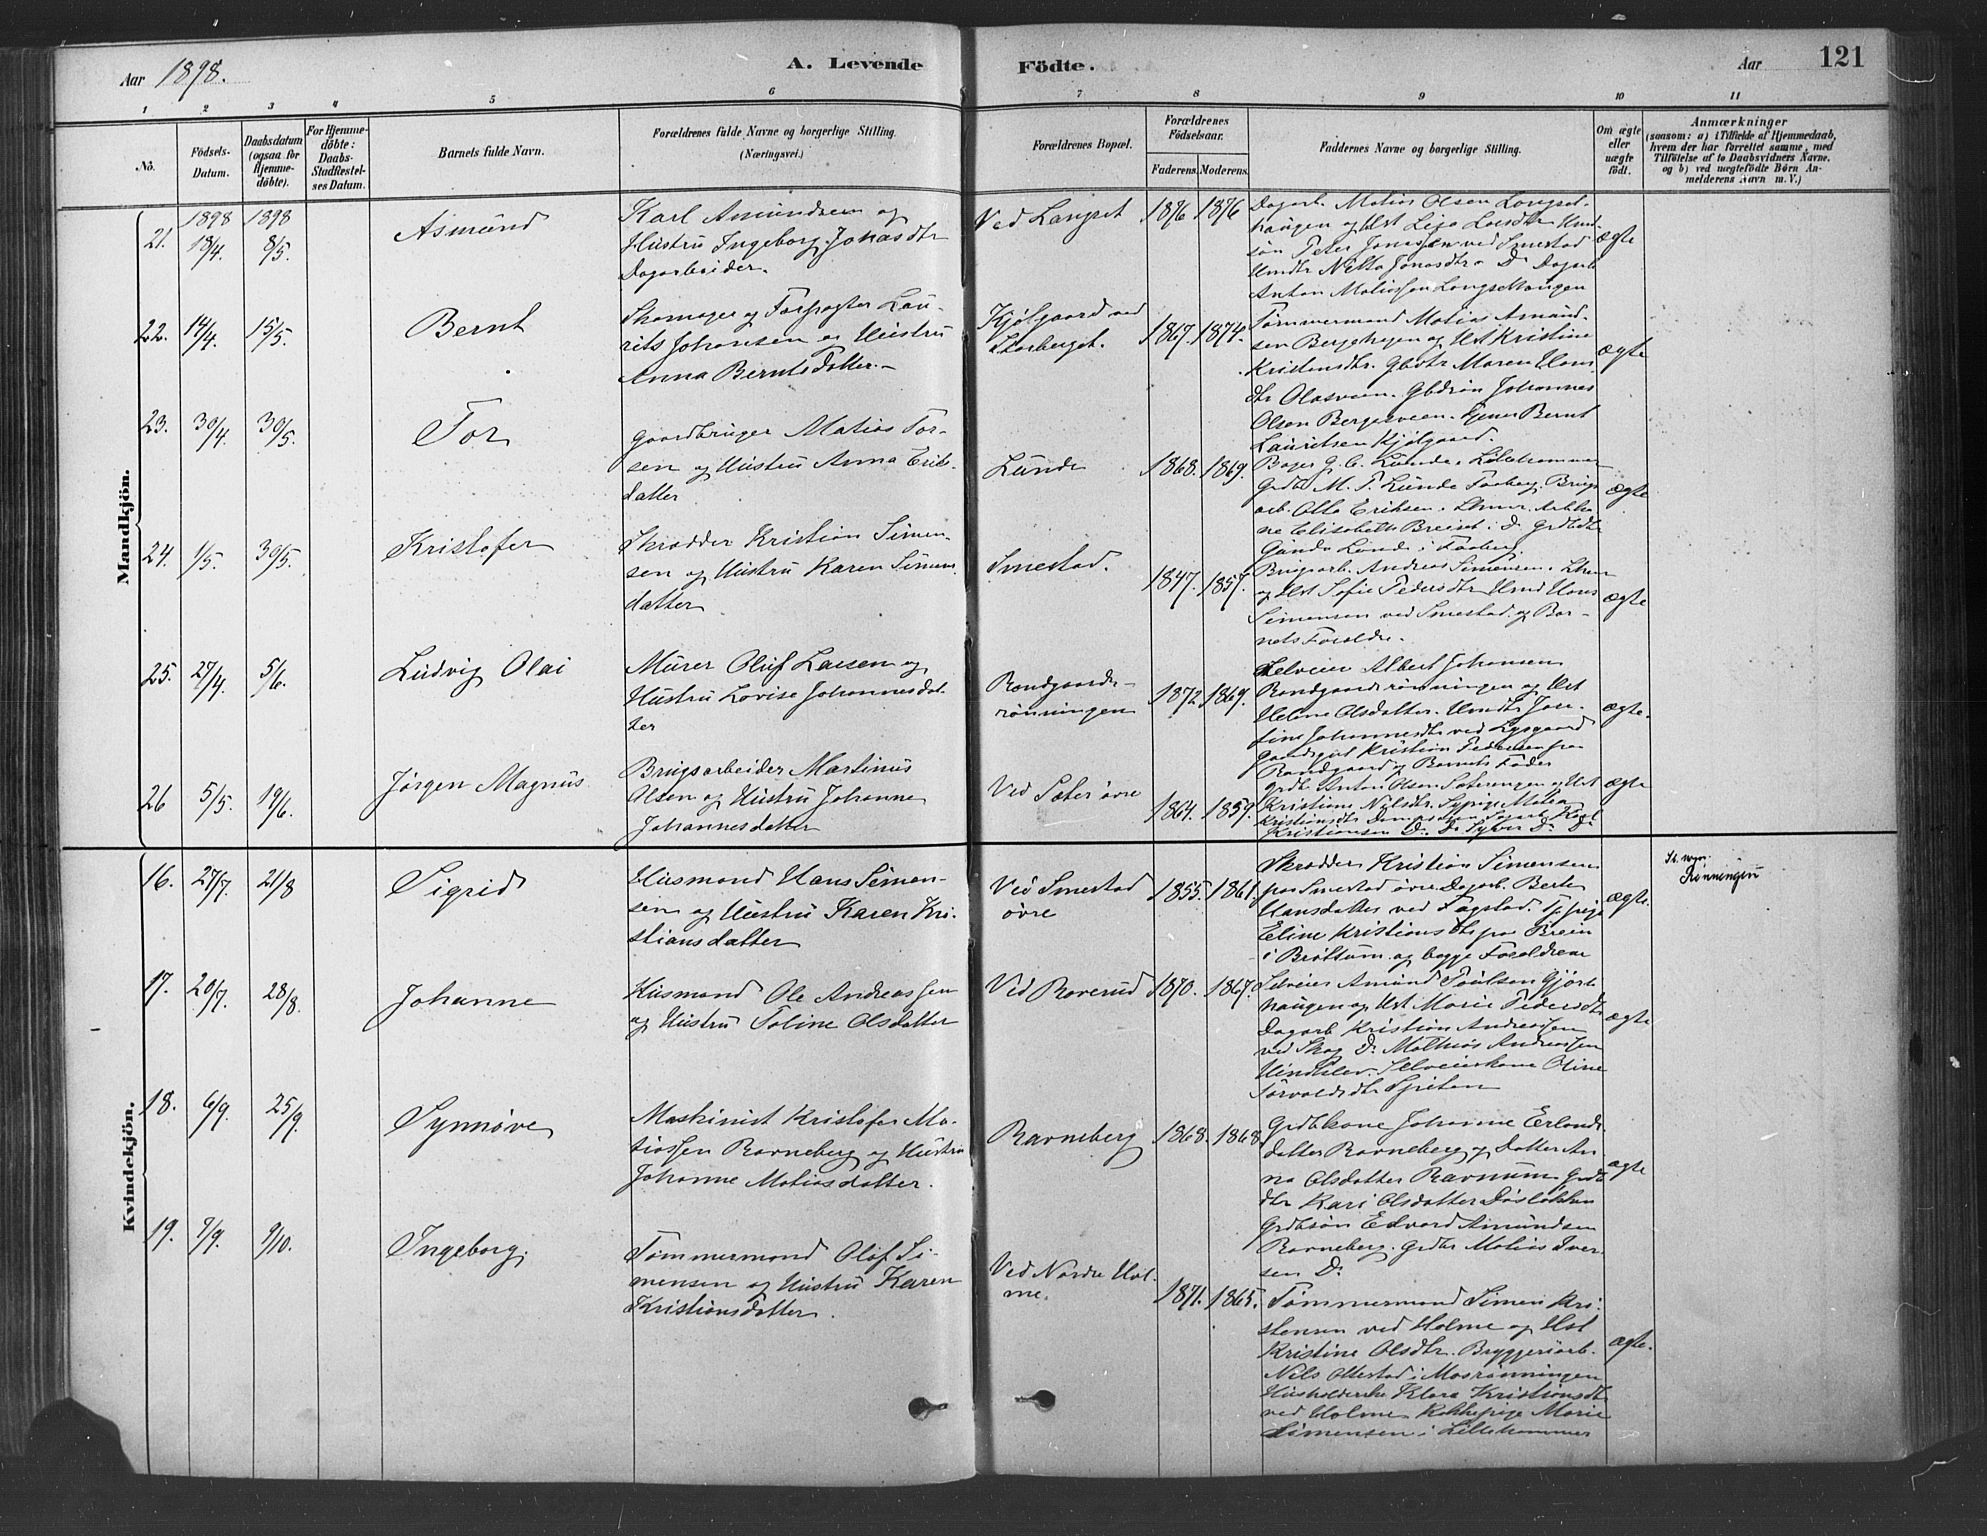 Aar 1898.
A. Levende
Födte.
Aar
121
1
2
3
4
5
6
7
8
9
10
11
No.
Födsels-
Datum.
Daabsdatum
(ogsaa for
Hjemme-
döbte).
For Hjemme-
döbte:
Daabs-
Stadfestel-
ses Datum.
Barnets fulde Navn.
Forældrenes fulde Navne og borgerlige Stilling.
(Næringsvei.)
Forældrenes Bopæl.
Forældrenes
Födselsaar.
Faderens.
Moderens.
Faddernes Navne og borgerlige Stilling.
Om ægte
eller
uægte
födt.
Anmærkninger
(saasom: a) i Tilfælde af Hjemmedaab,
hvem der har forrettet samme, med
Tilföielse af to Daabsvidners Navne.
og b) ved uægtefödte Börn An-
melderens Navn m. V.)
Mandkjön.
21.
1898
18/4.
1898
8/5.
Asmund
Karl Amundsen og
Hustru Ingeborg Jonasdtr
Dagarbeider.
Ved Langset
1876
1876
Dagarb. Matias Olsen Langset-
haugen og Hst Lisa Larsdtr
søn Peter Jonassen ved Smestad
Netta Jonasdtr Do Dagarb
Anton Matiassen Langsethaugen
ægte
22.
14/4.
15/5.
Bernt
Skomager og Forpagter Lau-
rits Johansen og Hustru
Anna Berntsdatter.
Kjølgaard ved
Storberget.
1867.
1874.
Tømmermand Matias Amund-
sen Bergehagen og Hst Kristine
Kristensdtr. Gbdtr Maren Hans
dtr Olasveen. Gbdsøn Johannes
Olsen Bergesveen. Bernt
Lauritsen Kjølgaard.
ægte
23.
30/4.
30/5.
Tor
Gaardbruger Matias Tor-
sen og Hustru Anna Erik-
datter
Lunde
1868.
1869.
Bager G. C. Lunde. Lillehammer
Grdb. M. T. Lunde Faaberg. Brugs
arb. Otto Eriksen. Lhmr.
ne Elisabeth Breiset i Do
Gunda Lunde i Faaberg.
ægte
24.
1/5.
30/5.
Kristofer
Skrædder Kristian Simen-
sen og Hustru Karen Simens
datter
Smestad.
1847.
1857.
Brugsarb. Andreas Simensen. Lhmr
og Hst Sofie Pedersdtr Hans
Simensen ved Smestad og Bar-
nets Forældre.
ægte
25.
27/4.
5/6.
Ludvig Olai
Murer Oluf Larsen og
Hustru Lovise Johannesdat-
ter
Randgaards-
rønningen
1872
1869.
Selveier Albert Johansen
Randgaardsrønningen og Hst
Helene Olsdatter. Jose-
fine Johannesdtr ved Lysgaard
Kristian Pedersen fra
Randgaard og Barnets Fader
ægte.
26
5/5.
19/6.
Jørgen Magnus
Brugsarbeider Martinus
Olsen og Hustru Johanne
Johannesdatter
Ved Sæter øvre
1864.
1859.
Grdb. Anton Olsen Sæterengen og Hst
Kristiane Nilsdtr. Matea
Kristiansdtr Dagarb. Karl
Kristiansen Do.
ægte
Kvindekjön.
16.
27/7.
21/8
Sigrid
Husmand Hans Simen-
sen og Hustru Karen Kri-
stiansdatter
Ved Smestad
øvre
1855.
1861.
Skrædder Kristian Simensen
paa Smestad øvre Dagarb. Berte
Hansdatter ved Fagstad.
Eline Kristiansdtr paa Brein
i Brøttum og begge Forældrene
ægte.
Rønningen
17.
20/7.
28/8.
Johanne
Husmand Ole Andreassen
og Hustru Toline Olsdatter
Ved Roverud
1870.
1867.
Selveier Amund Paulsen Gjørs
haugen og Hst Marie Pedersdtr
Dagarb Kristian Andreassen
ved Skog Do Mathias Andreassen
Hindklev. Selveierkone Oline
Torvaldsdtr
ægte
18.
6/9.
25/9.
Synnøve
Maskinist Kristofer Ma-
tiassen Ravneberg og Hustru
Johanne Matiasdatter.
Ravneberg
1868.
1868
Grdbkone Johanne Erlands
datter Ravneberg og Datter An-
na Olsdatter Ravnum Grdb
dtr Kari Olsdatter
Grdbsøn Edvard Amundsen
Ravneberg. Grdbr Matias Iver-
sen Do
ægte
19.
7/9.
9/10.
Ingeborg.
Tømmermand Olaf Si-
mensen og Hustru Karen
Kristiansdatter.
Ved Nordre Hol-
me.
1871.
1865.
Tømmermand Simen Kri-
stensen ved Holme og Hst
Kristine Olsdtr. Bryggeriarb.
Nils Ollestad i Mosrønningen
Husholderske Klara Kristiansdtr
ved Holme Kokkepige Marie
Simensen i Lillehammer
ægte.